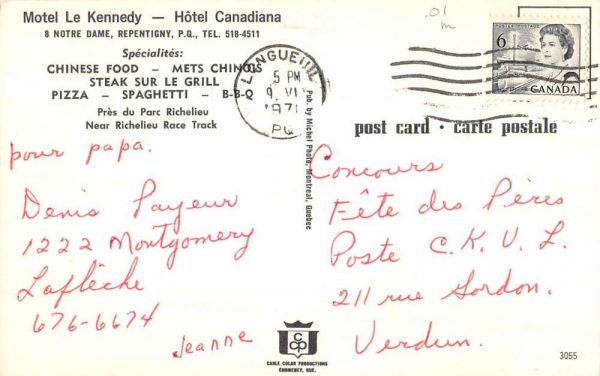 Motel Le Kennedy — Hôtel Canadiana
8 NOTRE DAME, REPENTIGNY, P.Q., TEL. 518-4511
Spécialités:
CHINESE FOOD — METS CHINOIS
STEAK SUR LE GRILL
PIZZA — SPAGHETTI — B-B-Q
Près du Parc Richelieu
Near Richelieu Race Track
pour papa.
Denis Payeur
1222 Montgomery
Laflèche
676-6674
Jeanne
LONGUEUIL
5 PM
9 VI
1971
PQ
Pub. by Michel Photo, Montreal, Quebec
.01
m
6
CANADA
post card • carte postale
Concours
Fête des Pères
Poste C.K.V.L.
211 rue Gordon.
Verdun.
CCP
CANLE COLOR PRODUCTIONS
CHOMEDEY, QUE.
3055